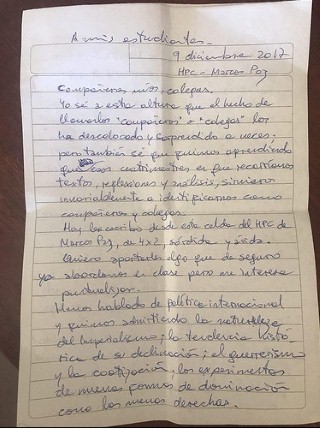 A mis estudiantes.
9 diciembre 2017
HPC - Marcos Paz
Compañeros míos, colegas.
Yo sé a esta altura que el hecho de
llamarlos "compañeros" o "colegas" los
ha descolocado y sorprendido a veces;
pero también sé que quienes aprendiendo
que esos cuatrimestres en que recorríamos
textos, reflexiones y análisis, sirvieron
invariablemente a identificarnos como
compañeros y colegas.
Hoy les escribo desde esta celda del HPC de
Marcos Paz, de 4x2, sórdida y
Quiero aportarles algo que de seguro
ya abordamos en clase pero me interesa
puntualizar.
Hemos hablado de política internacional
y fuimos advirtiendo la naturaleza
del Imperialismo; la tendencia histó
rica de su declinación; el guerrerismo
y la cooptación, los experimentos
de nuevas formas de dominación
como las nuevas derechas.